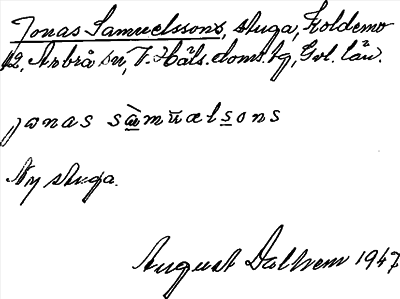 Jonas Samuelssons, stuga, Koldemo
12, Arbrå sn, V. Häls. doms.hg, Gvl. län.
jonas sàmŭælsons
Ny stuga.
August Dalhem 1947